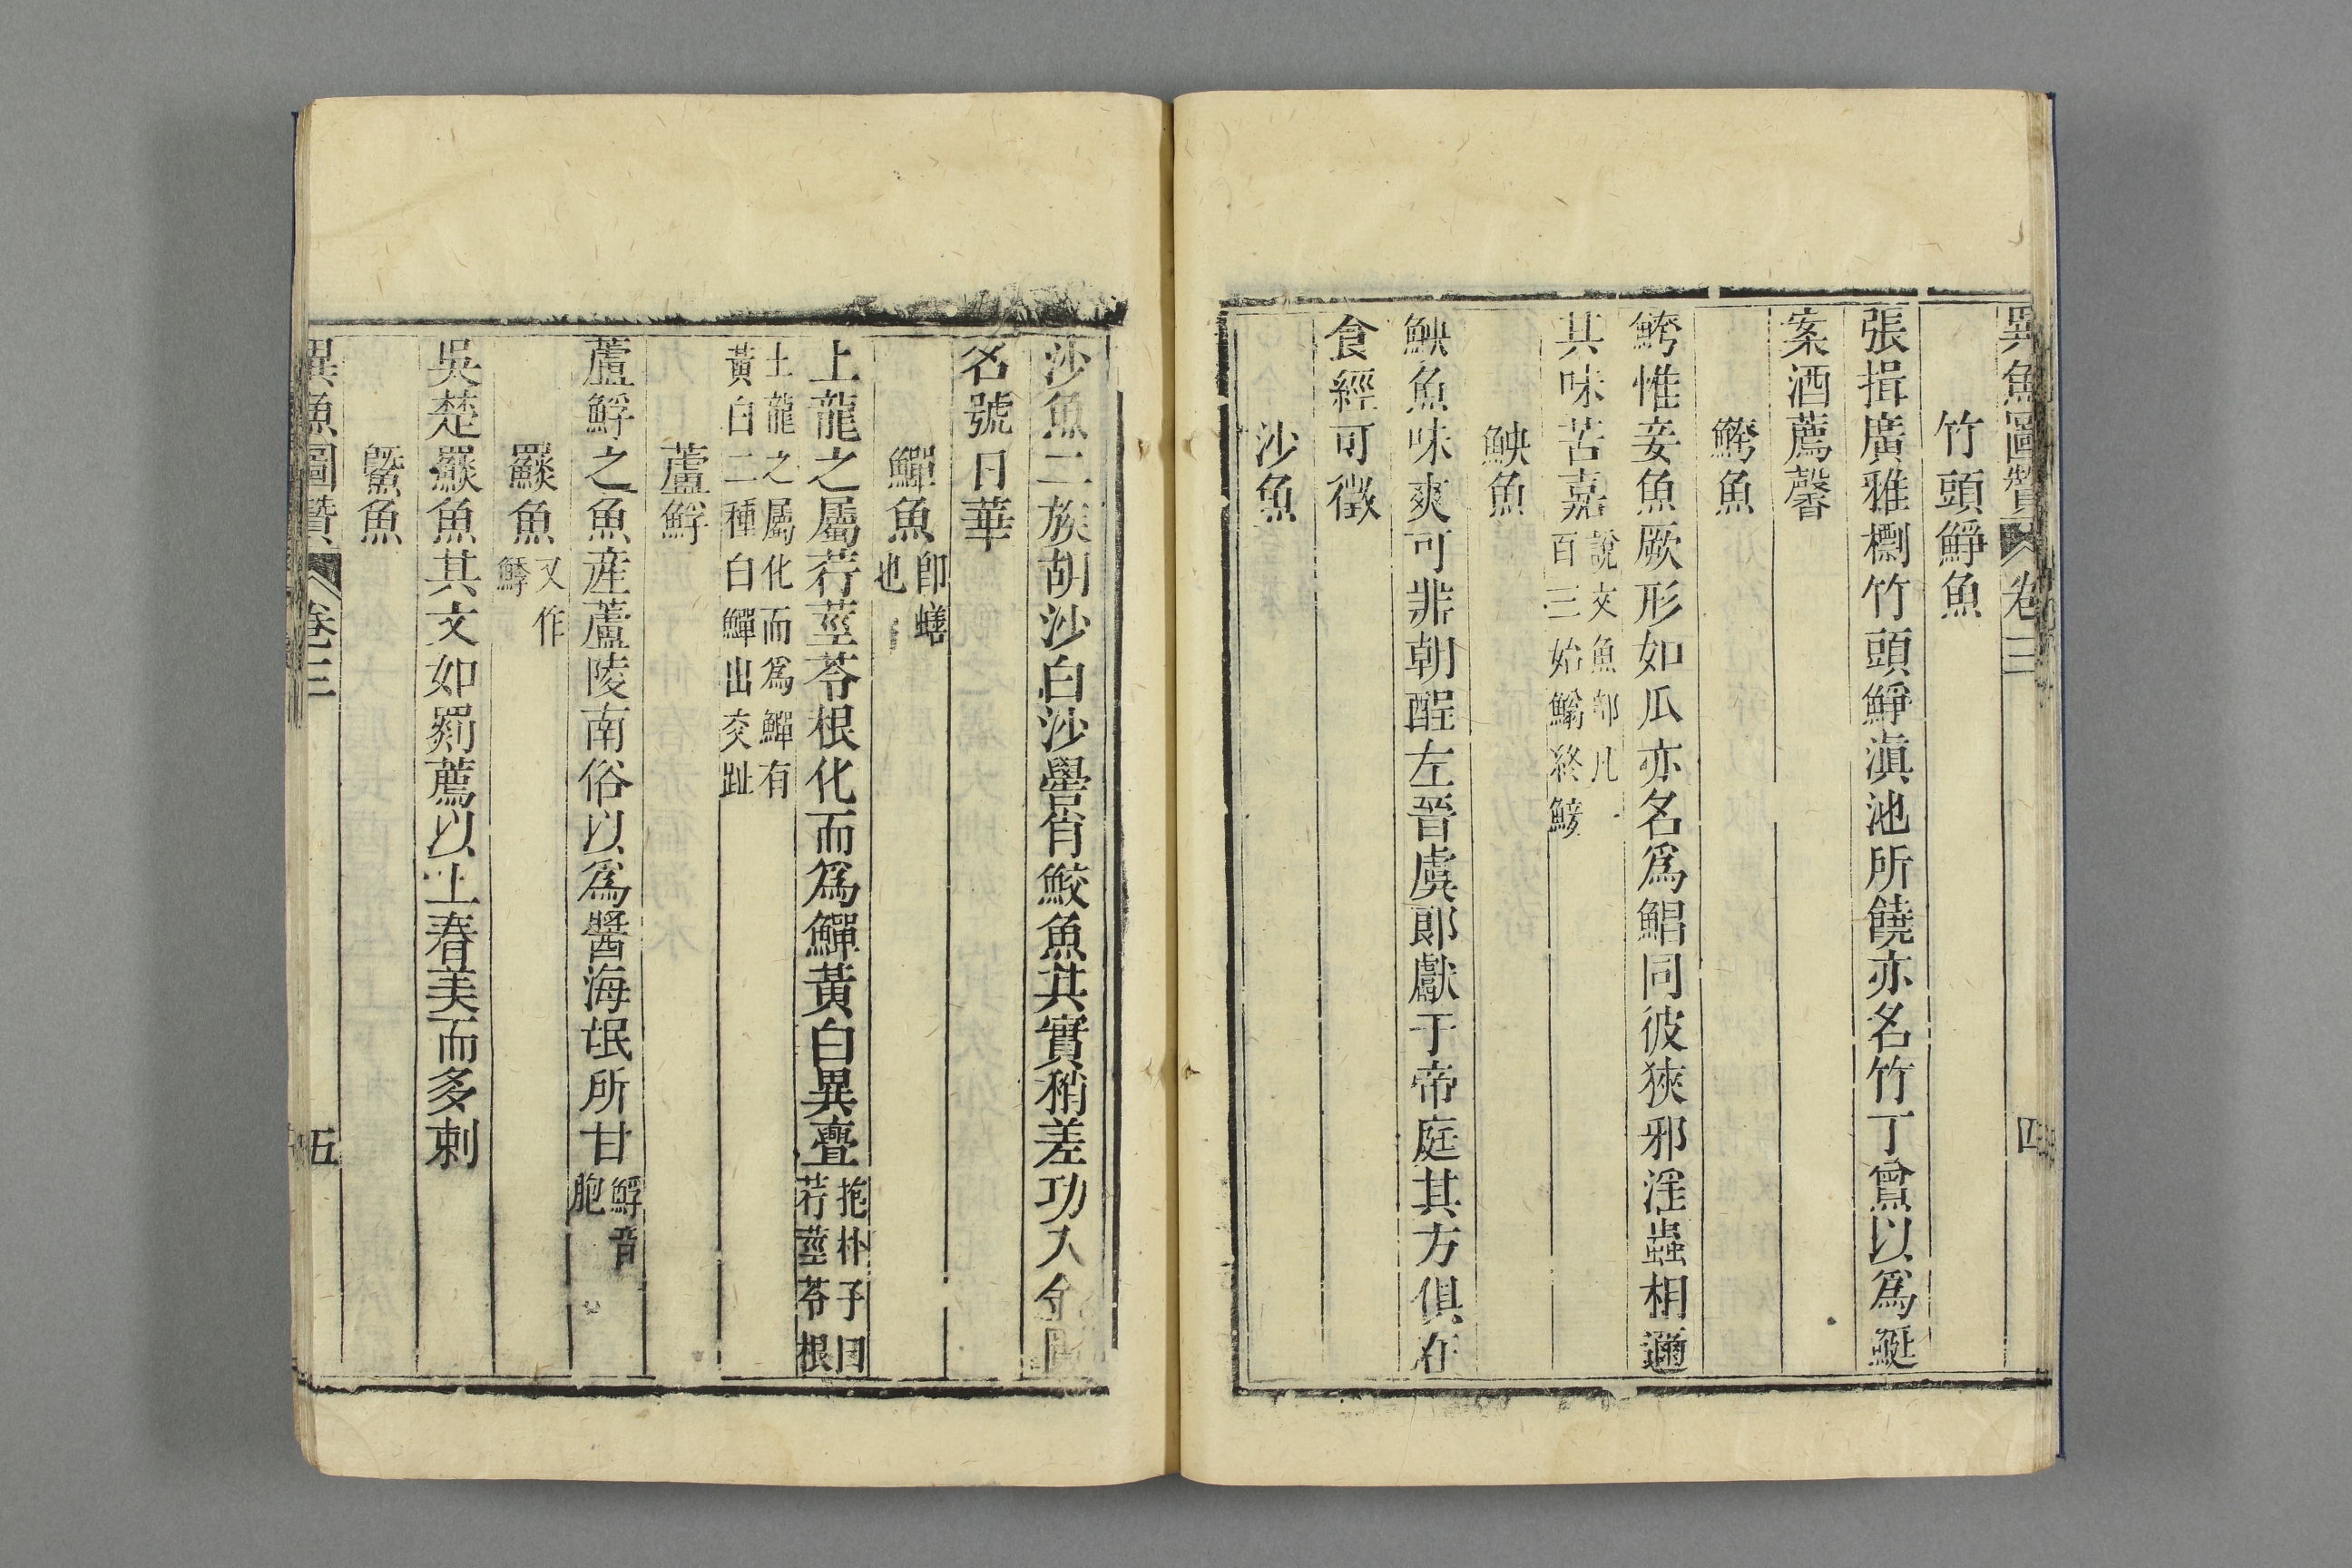 異魚圖贊 卷三 四
竹頭鯙魚
張揖廣雅標竹頭鯙滇池所饒亦名竹丁鱠以為鯅
案酒薦馨
鮬魚
鮬惟妾魚厥形如瓜亦名為鯧同彼狹邪淫蟲相邇
其味苦嘉說文魚部凡
百三始鰯終鯪
鉠魚
鉠魚味爽可詎朝酲左晉虞郞獻于帝庭其方俱存
食經可徵
沙魚
沙魚二族胡沙白沙譽肖鮫魚其實稍差功入
名號日華
鱓魚卽蟮
也
土龍之屬荇莖芩根化而為鱓黃白異亹抱朴子曰
荇莖芩根
土龍之屬化而為鱓有
黃白二種白鱓出交趾
蘆䱐
蘆䱐之魚産蘆陵南俗以為醬海氓所甘䱐音
胞
䍁魚又作
鯚
吳楚䍁魚其文如罽薦以上春美而多刺
鱀魚
異魚圖贊 卷三 五